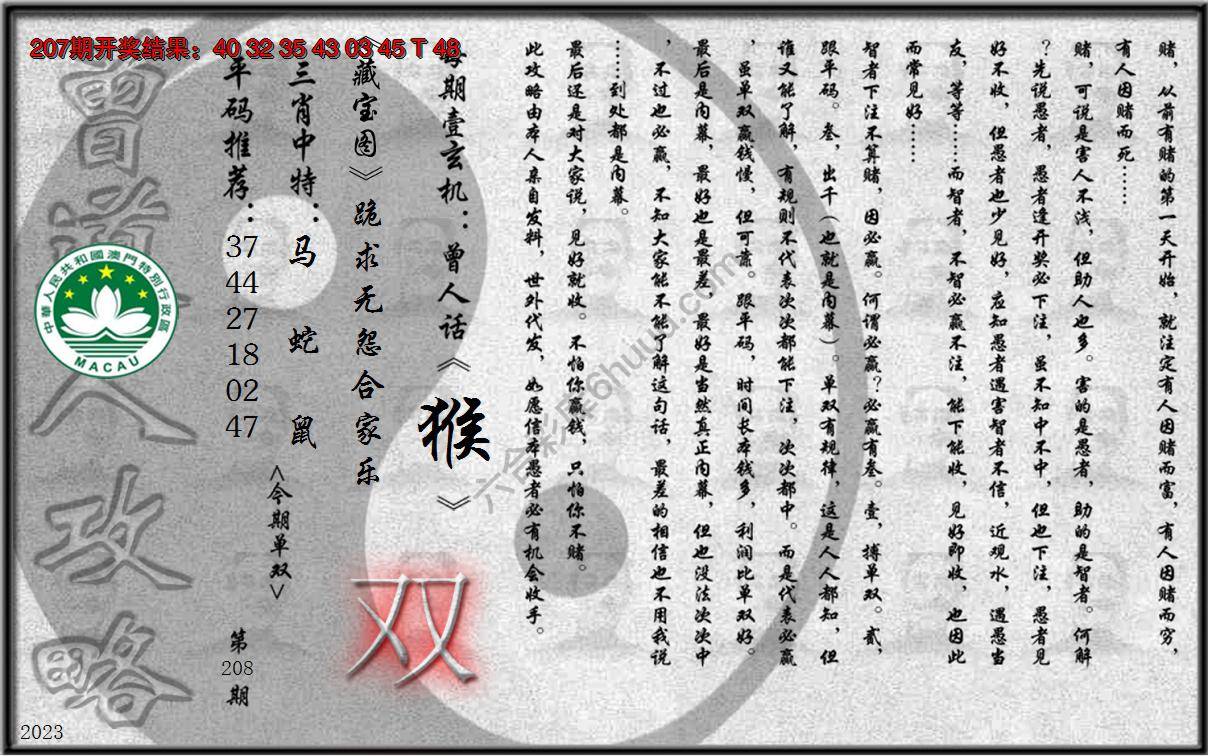 207期开奖结果：40 32 35 43 03 45 T 48
赌，从前有赌的第一天开始，就注定有人因赌而富，有人因赌而穷，
有人因赌而死……
赌，可说是害人不浅，但助人也多。害的是愚者，助的是智者。何解
？先说愚者，愚者逢开奖必下注，虽不知中不中，但也下注，愚者见
好不收，但愚者也少见好，应知愚者遇害智者不信，近观水，遇愚当
友，等等……而智者，不智必赢不注，能下能收，见好即收，也因此
而常见好……
智者下注不算赌，因必赢。何谓必赢？必赢有叁。壹，搏单双。贰，
跟平码。叁，出千（也就是内幕）。单双有规律，这是人人都知，但
谁又能了解，有规则不代表次次都能下注，次次都中。而是代表必赢
，虽单双赢钱慢，但可靠。跟平码，时间长本钱多，利润比单双好。
最后是内幕，最好也是最差，最好是当然真正内幕，但也没法次次中
，不过也必赢，不知大家能不能了解这句话，最差的相信也不用我说
……到处都是内幕。
最后还是对大家说，见好就收。不怕你赢钱，只怕你不赌。
此攻略由本人亲自发料，世外代发，如愿信本愚者必有机会收手。
每期壹玄机：曾人话《猴》
《藏宝图》跪求无怨合家乐
双
三肖中特：马 蛇 鼠
<今期单双>
平码推荐：
37
44
27
18
02
47
第
208
期
曾道人攻略
中華人民共和國澳門特別行政區
MACAU
2023
六合彩库6huuu.com